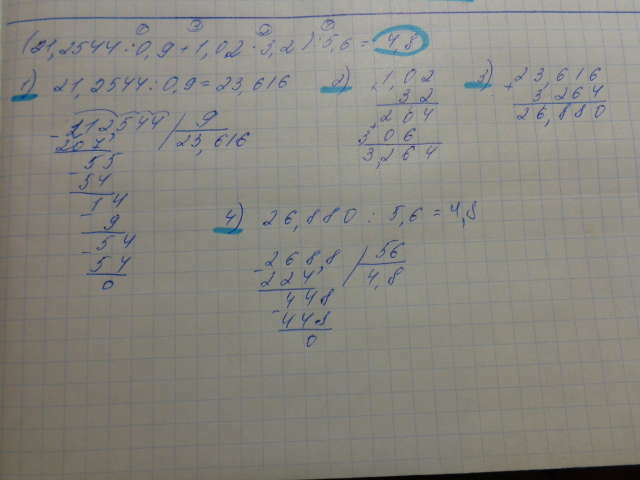 ① ③ ② ④
(21,2544 : 0,9 + 1,02 · 3,2) : 5,6 = 4,8
1) 21,2544 : 0,9 = 23,616
212544 | 9
207 23,616
55
54
14
9
54
54
0
2) 1,02
3 2
204
3 06
3,264
3) 23,616
+ 3 264
26,880
4) 26,880 : 5,6 = 4,8
268,8 | 56
224 4,8
448
448
0